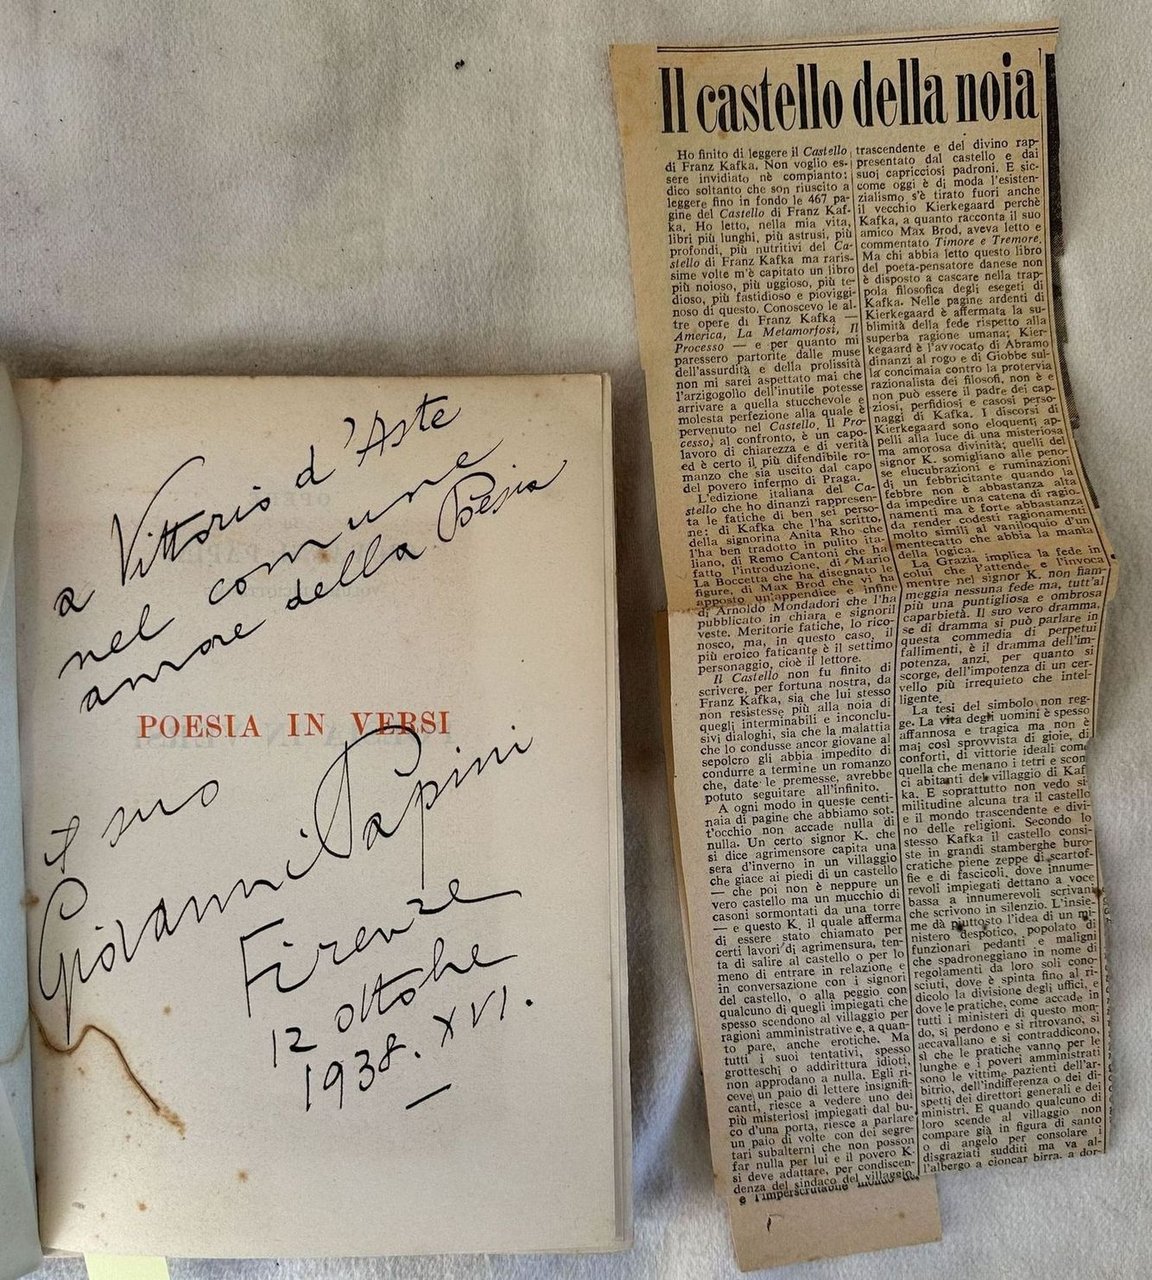 a Vittorio d'Aste
nel comune
amore della Poesia
POESIA IN VERSI
il suo
Giovanni Papini
Firenze
12 ottobre
1938. XVI.
Il castello della noia
Ho finito di leggere il Castello
di Franz Kafka. Non voglio es-
sere invidiato nè compianto:
dico soltanto che son riuscito a
leggere fino in fondo le 467 pa-
gine del Castello di Franz Kaf-
ka. Ho letto, nella mia vita,
libri più lunghi, più astrusi, più
profondi, più nutritivi del Ca-
stello di Franz Kafka ma raris-
sime volte m'è capitato un libro
più noioso, più uggioso, più te-
dioso, più fastidioso e pioviggi-
noso di questo. Conoscevo le al-
tre opere di Franz Kafka —
America, La Metamorfosi, Il
Processo — e per quanto mi
paressero partorite dalle muse
dell'assurdità e della prolissità
non mi sarei aspettato mai che
l'arzigogolo dell'inutile potesse
arrivare a quella stucchevole e
molesta perfezione alla quale è
pervenuto nel Castello. Il Pro-
cesso, al confronto, è un capo-
lavoro di chiarezza e di verità
ed è certo il più difendibile ro-
manzo che sia uscito dal capo
del povero infermo di Praga.
L'edizione italiana del Ca-
stello che ho dinanzi rappresen-
ta le fatiche di ben sei perso-
ne: di Kafka che l'ha scritto,
della signorina Anita Rho che
l'ha ben tradotto in pulito ita-
liano, di Remo Cantoni che ha
fatto l'introduzione, di Mario
La Boccetta che ha disegnato le
figure, di Max Brod che vi ha
apposto un'appendice e infine
di Arnoldo Mondadori che l'ha
pubblicato in chiara e signoril
veste. Meritorie fatiche, lo rico-
nosco, ma, in questo caso, il
più eroico faticante è il settimo
personaggio, cioè il lettore.
Il Castello non fu finito di
scrivere, per fortuna nostra, da
Franz Kafka, sia che lui stesso
non resistesse più alla noia di
quegli interminabili e inconclu-
sivi dialoghi, sia che la malattia
che lo condusse ancor giovane al
sepolcro gli abbia impedito di
condurre a termine un romanzo
che, date le premesse, avrebbe
potuto seguitare all'infinito.
A ogni modo in queste centi-
naia di pagine che abbiamo sot-
t'occhio non accade nulla di
nulla. Un certo signor K. che
si dice agrimensore capita una
sera d'inverno in un villaggio
che giace ai piedi di un castello
— che poi non è neppure un
vero castello ma un mucchio di
casoni sormontati da una torre
— e questo K. il quale afferma
di essere stato chiamato per
certi lavori di agrimensura, ten-
ta di salire al castello o per lo
meno di entrare in relazione e
in conversazione con i signori
del castello, o alla peggio con
qualcuno di quegli impiegati che
spesso scendono al villaggio per
ragioni amministrative e, a quan-
to pare, anche erotiche. Ma
tutti i suoi tentativi, spesso
grotteschi o addirittura idioti,
non approdano a nulla. Egli ri-
ceve un paio di lettere insignifi-
canti, riesce a vedere uno dei
più misteriosi impiegati dal bu-
co d'una porta, riesce a parlare
un paio di volte con dei segre-
tari subalterni che non posson
far nulla per lui e il povero K.
si deve adattare, per condiscen-
denza del sindaco del villaggio,
e l'imperscrutabile mondo del
trascendente e del divino rap-
presentato dal castello e dai
suoi capricciosi padroni. E sic-
come oggi è di moda l'esisten-
zialismo s'è tirato fuori anche
il vecchio Kierkegaard perchè
Kafka, a quanto racconta il suo
amico Max Brod, aveva letto e
commentato Timore e Tremore.
Ma chi abbia letto questo libro
del poeta-pensatore danese non
è disposto a cascare nella trap-
pola filosofica degli esegeti di
Kafka. Nelle pagine ardenti di
Kierkegaard è affermata la su-
blimità della fede rispetto alla
superba ragione umana; Kier-
kegaard è l'avvocato di Abramo
dinanzi al rogo e di Giobbe sul-
la concimaia contro la protervia
razionalista dei filosofi, non è e
non può essere il padre dei cap-
ziosi, perfidiosi e casosi perso-
naggi di Kafka. I discorsi di
Kierkegaard sono eloquenti ap-
pelli alla luce di una misteriosa
ma amorosa divinità; quelli del
signor K. somigliano alle peno-
se elucubrazioni e ruminazioni
di un febbricitante quando la
febbre non è abbastanza alta
da impedire una catena di ragio-
namenti ma è forte abbastanza
da render codesti ragionamenti
molto simili al vaniloquio d'un
mentecatto che abbia la mania
della logica.
La Grazia implica la fede in
colui che l'attende e l'invoca
mentre nel signor K. non fiam-
meggia nessuna fede ma, tutt'al
più una puntigliosa e ombrosa
caparbietà. Il suo vero dramma,
se di dramma si può parlare in
questa commedia di perpetui
fallimenti, è il dramma dell'im-
potenza, anzi, per quanto si
scorge, dell'impotenza di un cer-
vello più irrequieto che intel-
ligente.
La tesi del simbolo non reg-
ge. La vita degli uomini è spesso
affannosa e tragica ma non è
mai così sprovvista di gioie, di
conforti, di vittorie ideali come
quella che menano i tetri e scon
ci abitanti del villaggio di Kaf
ka. E soprattutto non vedo si
militudine alcuna tra il castello
e il mondo trascendente e divi-
no delle religioni. Secondo lo
stesso Kafka il castello consi-
ste in grandi stamberghe buro-
cratiche piene zeppe di scartof-
fie e di fascicoli, dove innume-
revoli impiegati dettano a voce
bassa a innumerevoli scrivani
che scrivono in silenzio. L'insie-
me dà piuttosto l'idea di un mi-
nistero despotico, popolato di
funzionari pedanti e maligni
che spadroneggiano in nome di
regolamenti da loro soli cono-
sciuti, dove è spinta fino al ri-
dicolo la divisione degli uffici, e
dove le pratiche, come accade in
tutti i ministeri di questo mon-
do, si perdono e si ritrovano, si
accavallano e si contraddicono,
sì che le pratiche vanno per le
lunghe e i poveri amministrati
sono le vittime pazienti dell'ar-
bitrio, dell'indifferenza o dei di-
spetti dei direttori generali e dei
ministri. E quando qualcuno di
loro scende al villaggio non
compare già in figura di santo
o di angelo per consolare i
disgraziati sudditi ma va al-
l'albergo a cioncar birra, a dor-